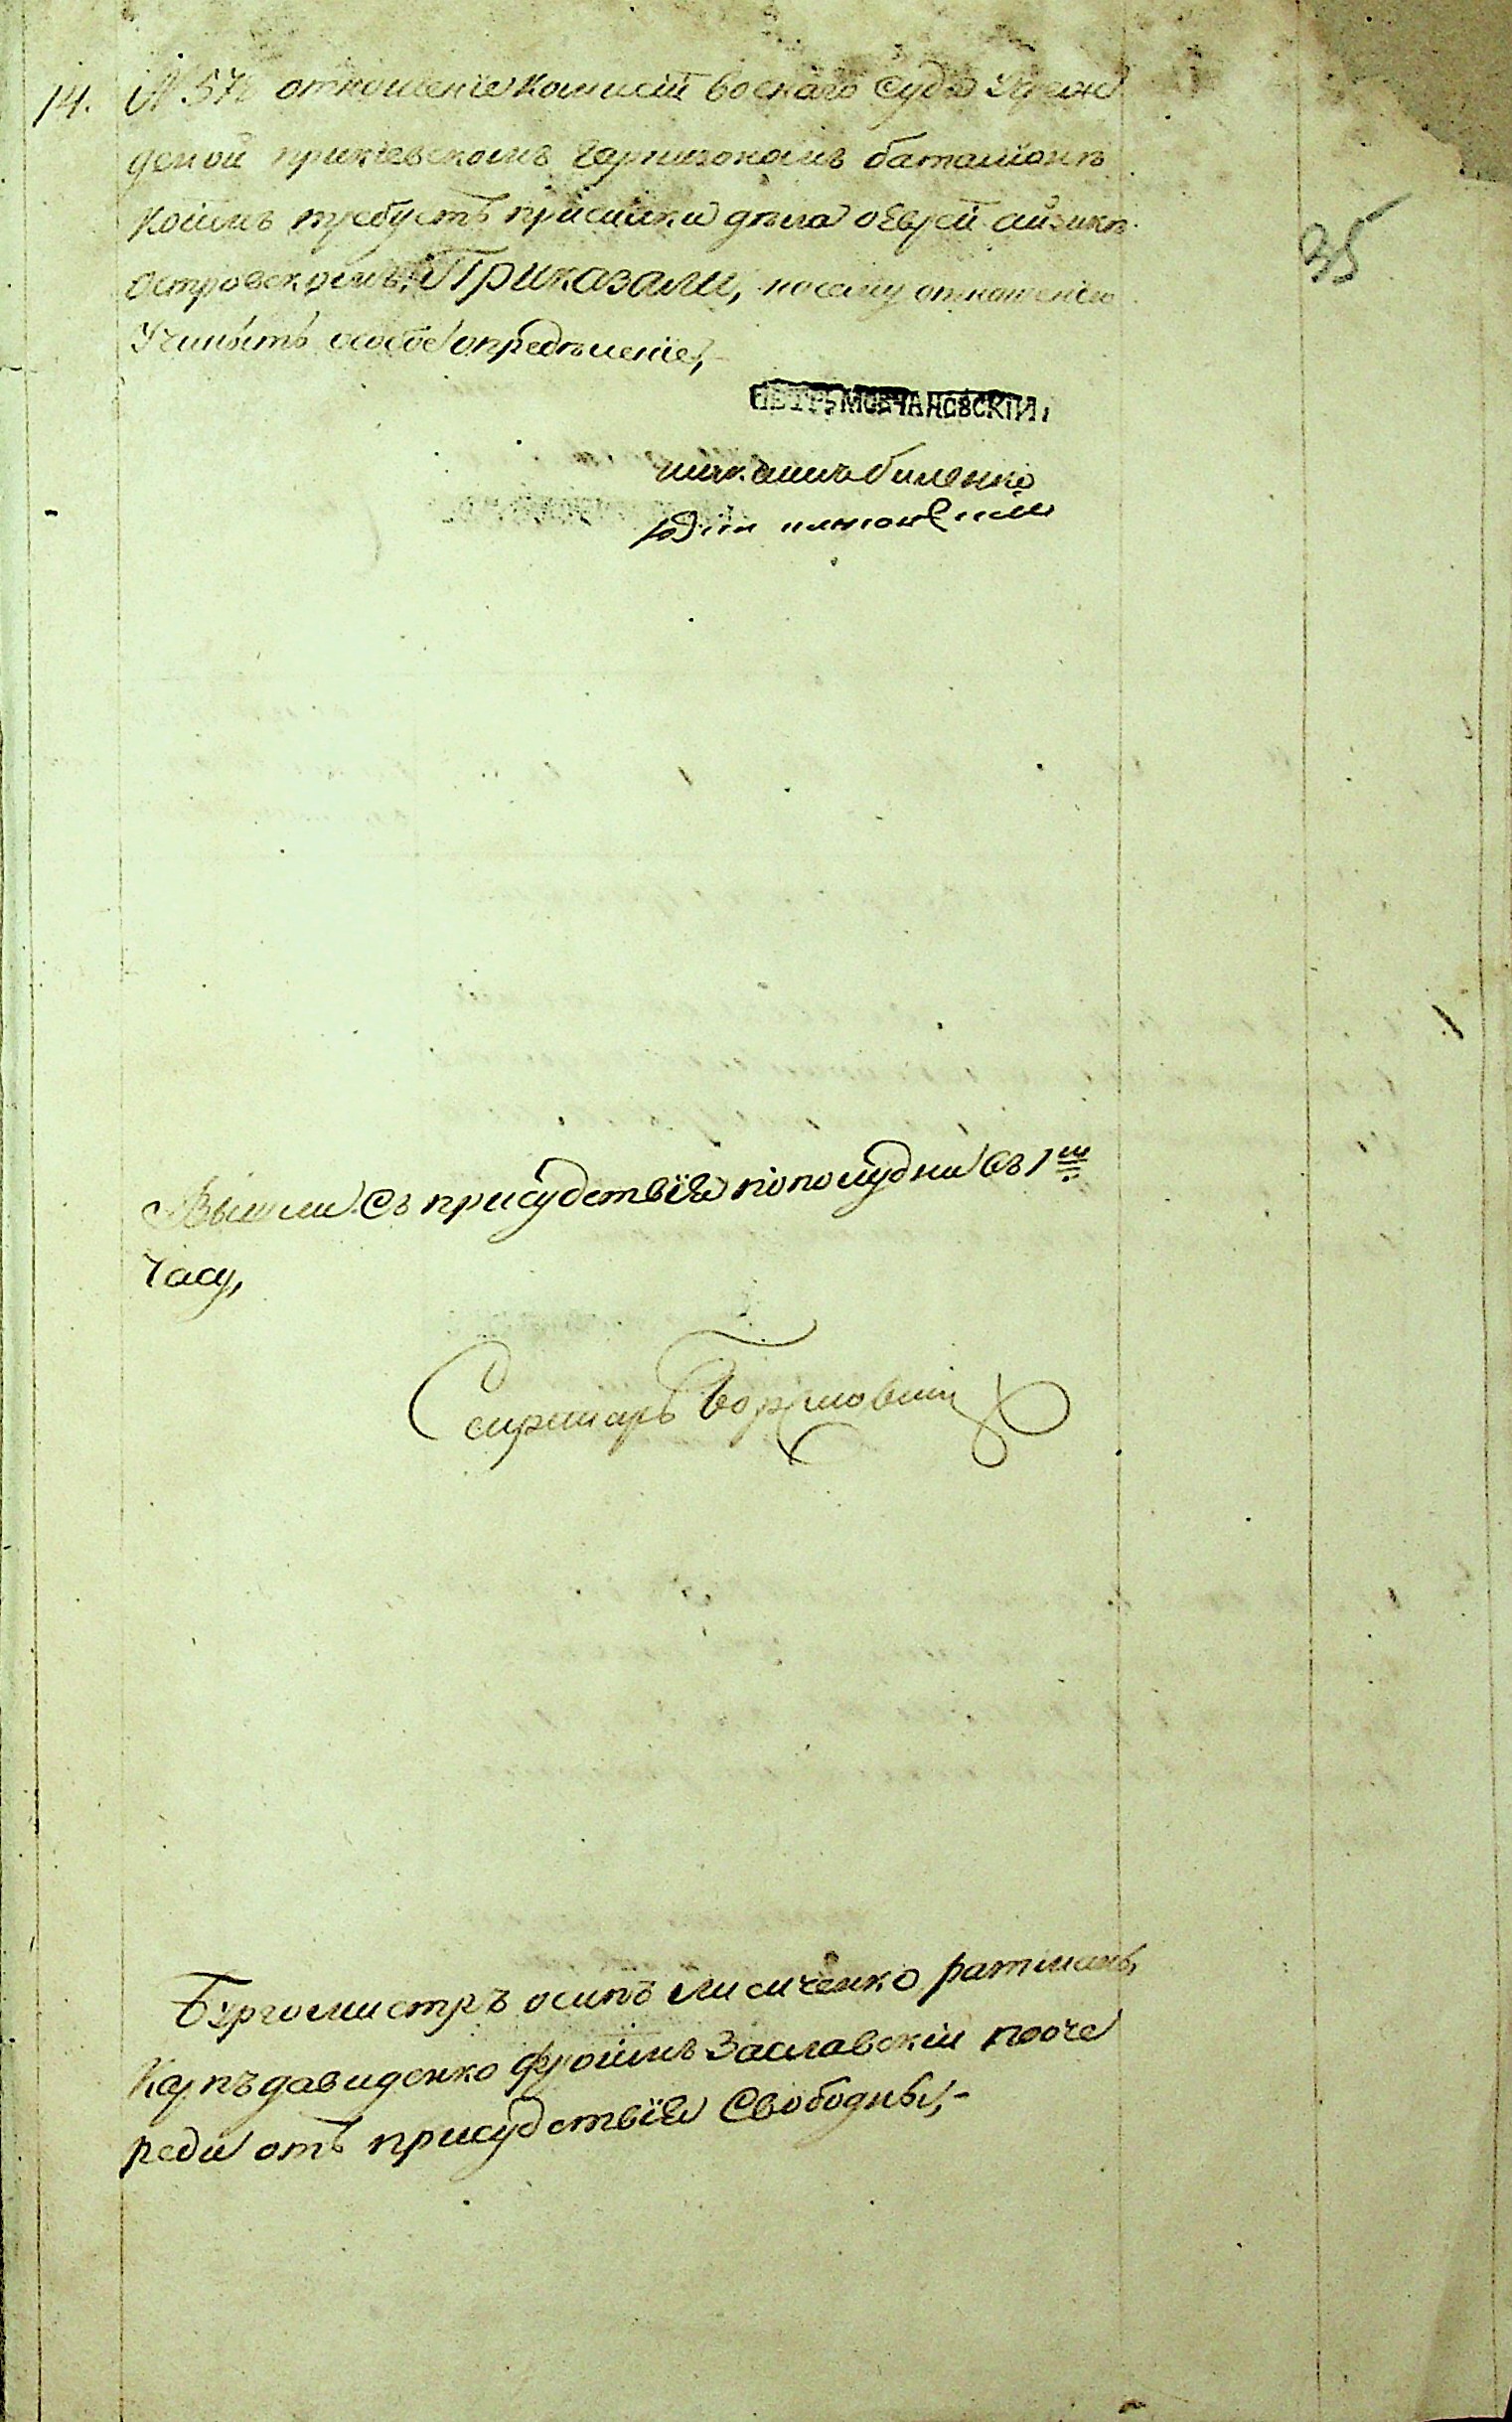 14. № 57 отношение Комисіи воєнаго Суда Учреж
деной прикіевскомъ Гарнизономъ баталіонѣ
коимъ требуетъ присилки дѣла оЕврей айзикѣ
Островскомъ, Приказали, посему отношенію
Учинить особое опредѣленіе,
35
ПЕТРЪ МОВЧАНОВСКІЙ,
биленко
Вышли съ присудствія пополудни въ 1 м
Часу,
Секретарь
Бургомистръ осипъ лисиченко ратманъ,
Карпъ давиденко фроимъ Заславскій пооче
реди отъ присудствія Свободны,-